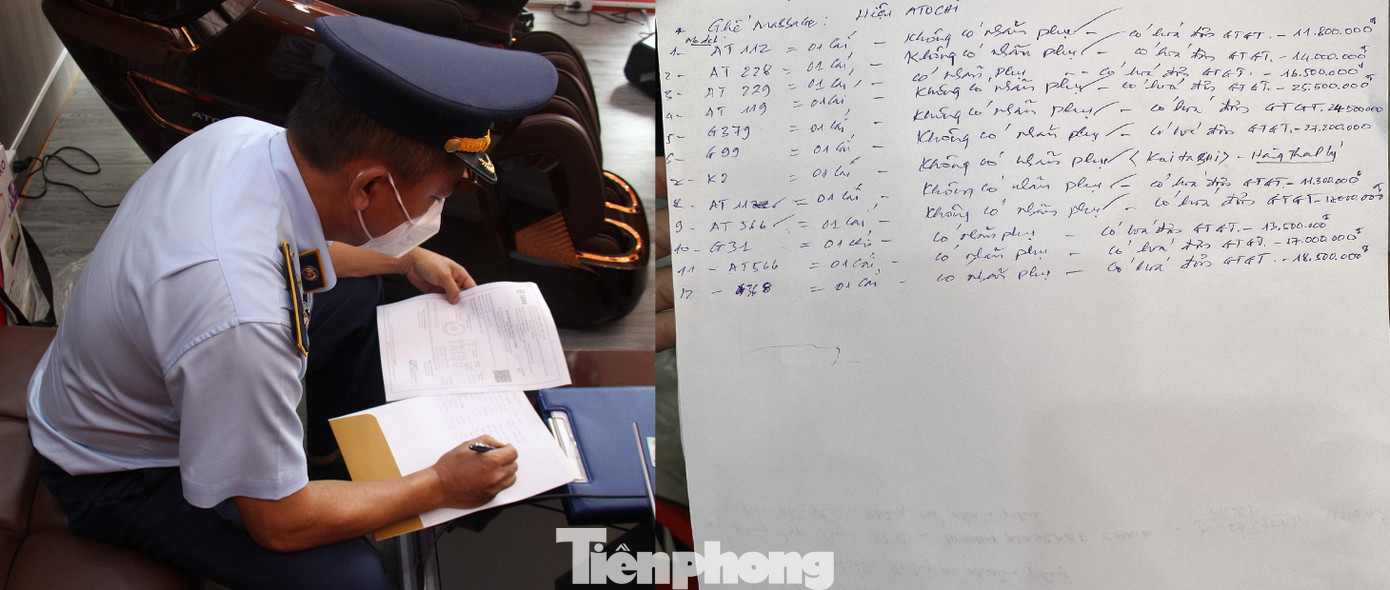 ATO
* Ghế Massage: Hiệu ATOCHI
Model:
1- AT 112 = 01 Cái - Không có nhãn phụ - có hoá đơn GTGT. - 11.800.000đ
2- AT 228 = 01 Cái, - Không có nhãn phụ - có hoá đơn GTGT. - 14.000.000đ
3- AT 229 = 01 Cái, - có nhãn phụ - có hoá đơn GTGT. - 16.500.000đ
4- AT 119 = 01 Cái - Không có nhãn phụ - có hoá đơn GTGT. - 25.500.000đ
5- G379 = 01 Cái - Không có nhãn phụ - có hoá đơn GTGT. 24.500.000
6- G99 = 01 Cái - Không có nhãn phụ - có hoá đơn GTGT. - 27.200.000
K2 = 01 Cái - Không có nhãn phụ (Kaitashi) - Hàng thanh lý
8- AT = 01 Cái - Không có nhãn phụ - có hoá đơn GTGT. - 11.300.000đ
9- AT 566 = 01 Cái, - Không có nhãn phụ - có hoá đơn GTGT
10- G31 = 01 Cái - có nhãn phụ - có hoá đơn GTGT. - 13.500.000đ
11- AT566 = 01 Cái - có nhãn phụ - có hoá đơn GTGT. - 17.000.000đ
12 - = 01 Cái - có nhãn phụ - có hoá đơn GTGT. - 18.500.000đ
Tiênphong